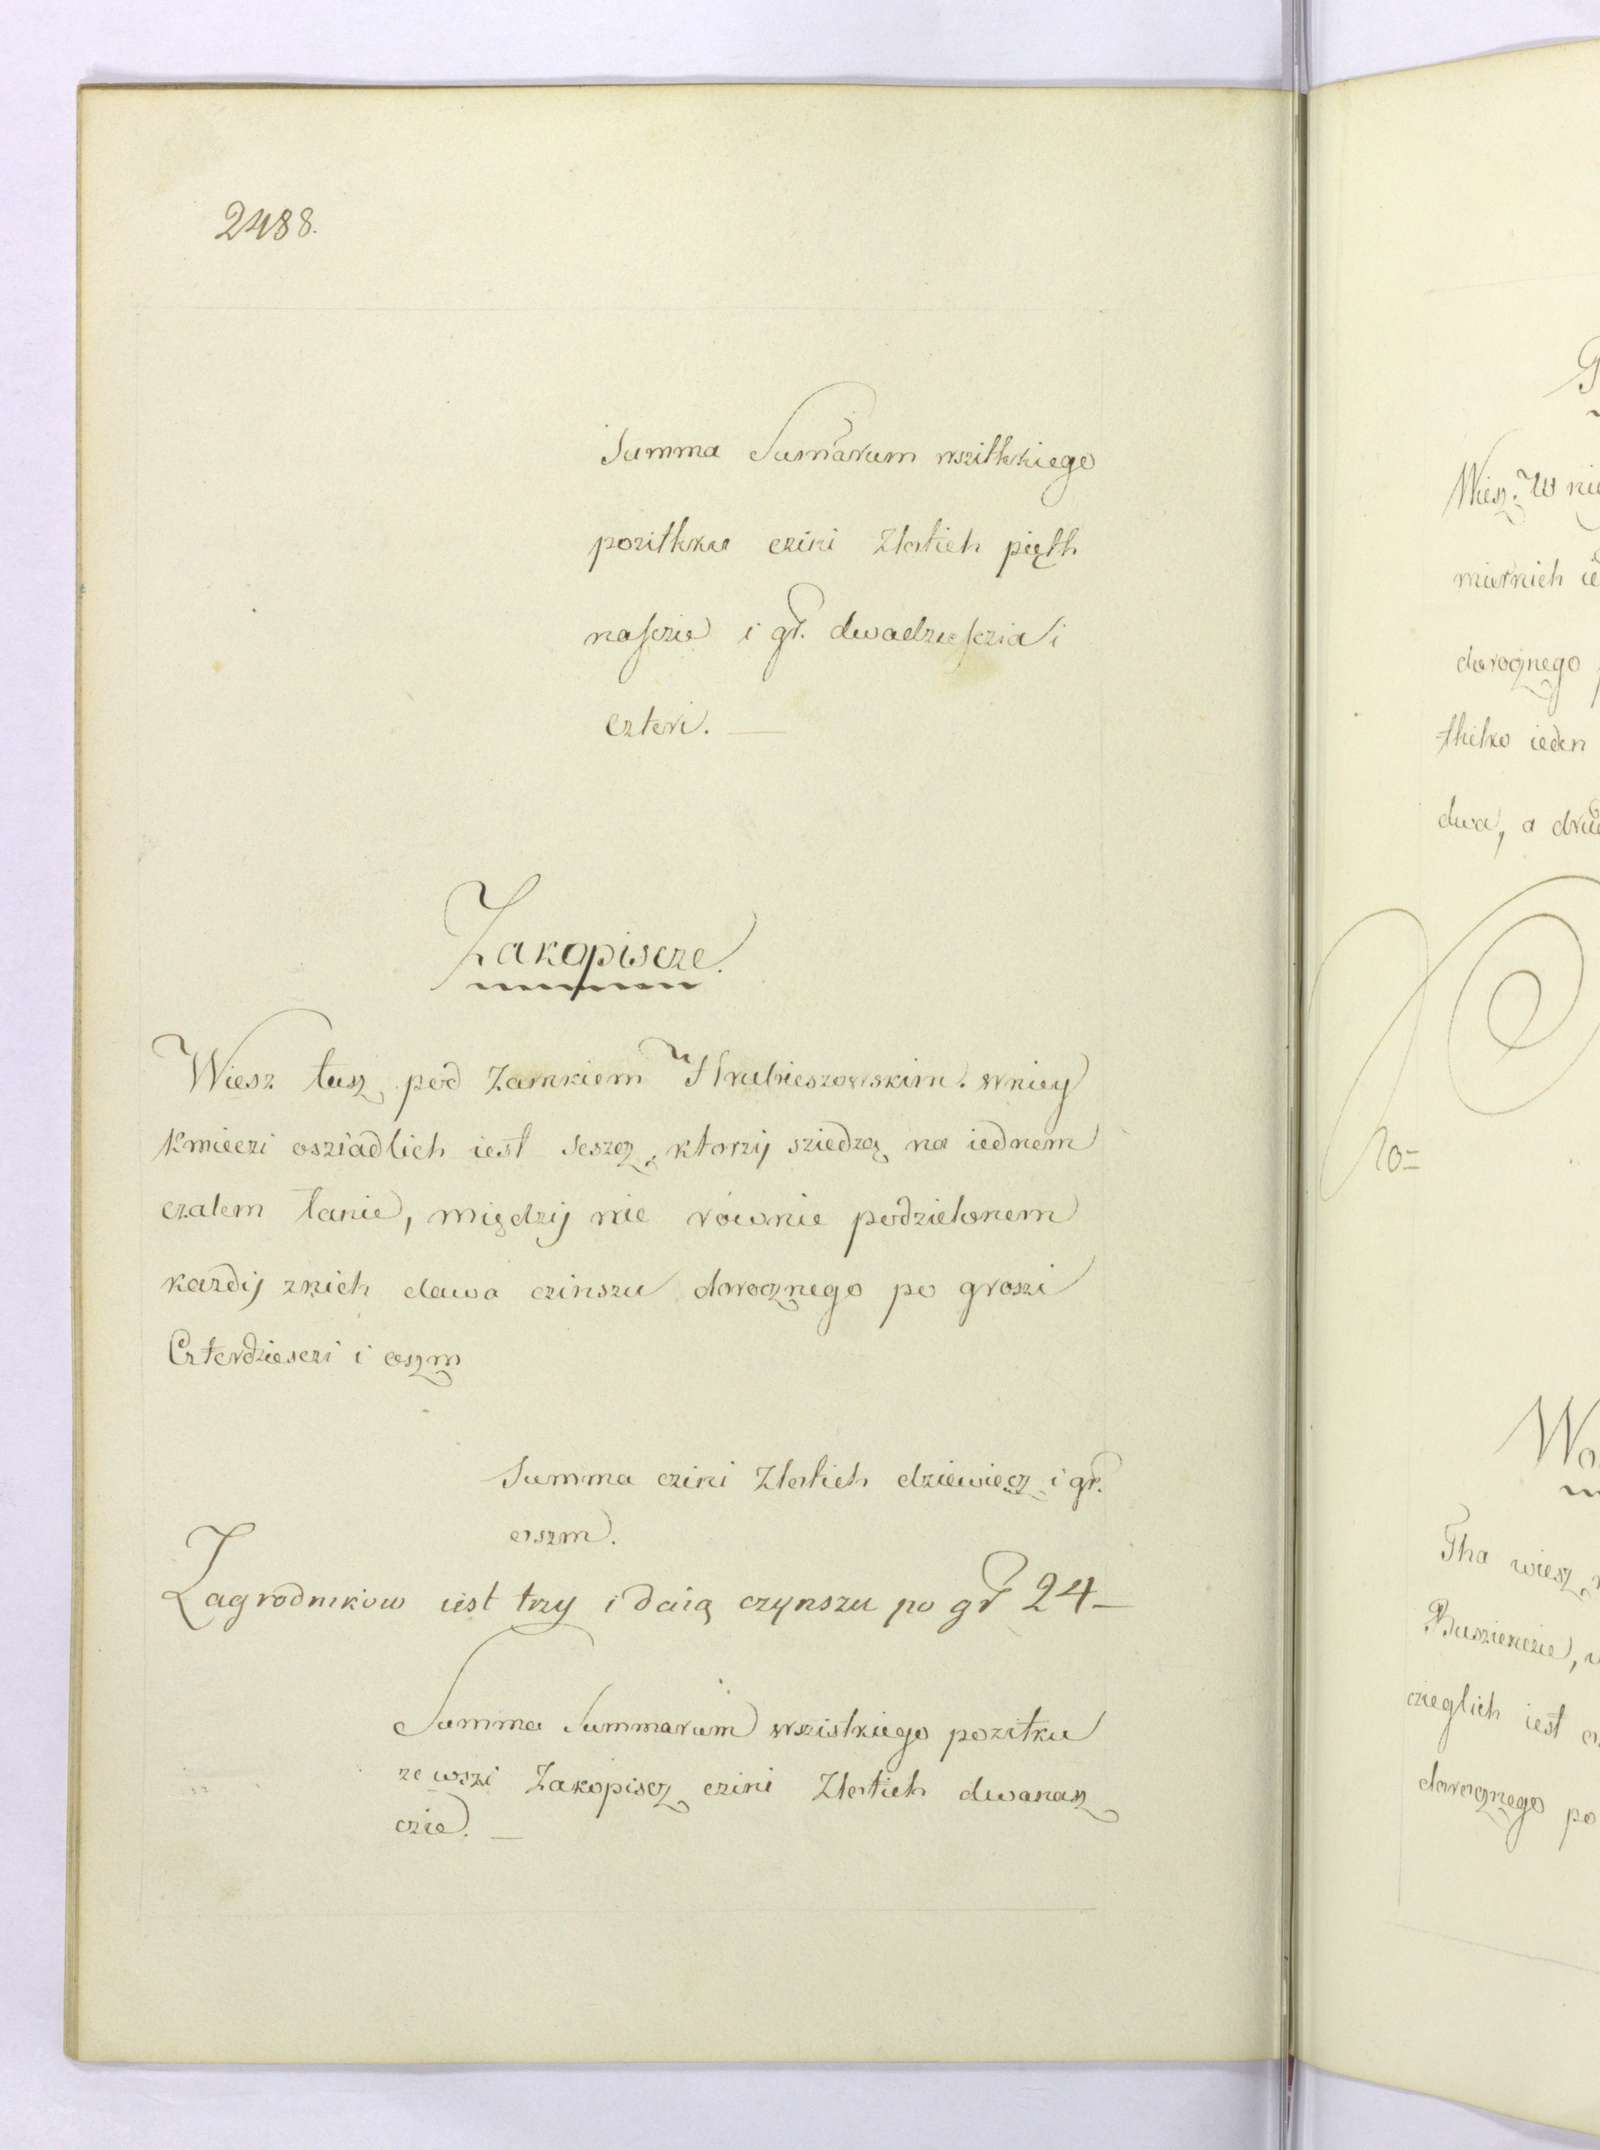 2488.
Summa Sumarum wszitkiego
pozitku czini Złotich pięth
nasczie i gr. dwadziesczia i
Czteri. —
Zakopiscze.
Wiesz tusz pod Zamkiem Hrubieszowskim. w niey
Kmieczi osziadlich iest seszcz, ktorzij sziedzą na iednem
czalem łanie, między nie równie podzielonem
kazdij znich dawa czinszu dorocznego po groszi
Czterdziesczi i oszm
Summa czini Złotich dziewiecz i gr.
oszm.
Zagrodnikow iest trzy i daią czynszu po gr 24 —
Summa Summarum wszistkiego pozitku
ze wszi Zakopiscz czini Złotich dwanasz
czie. —
Wiesz. W
dorocznego
thilko ieden
dwa, a
Tha wiesz
czieglich iest
dorocznego po